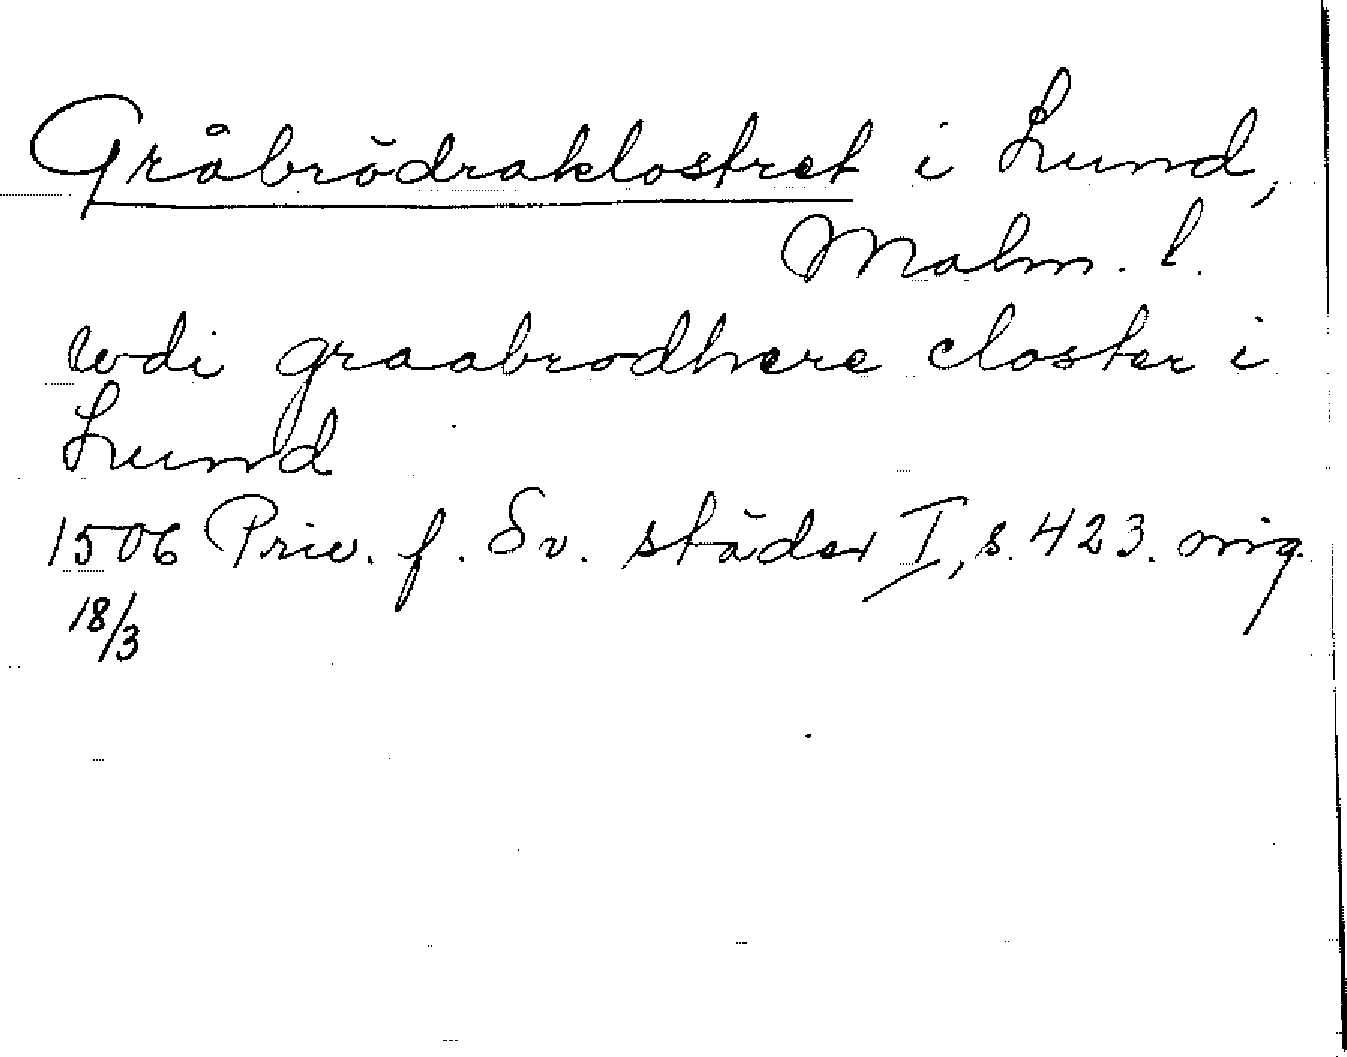 Gråbrödraklostret i Lund,
Malm. l.
wdi graabrodhere closter i
Lund
1506 Priv. f. Sv. städer I, s. 423. orig.
18/3